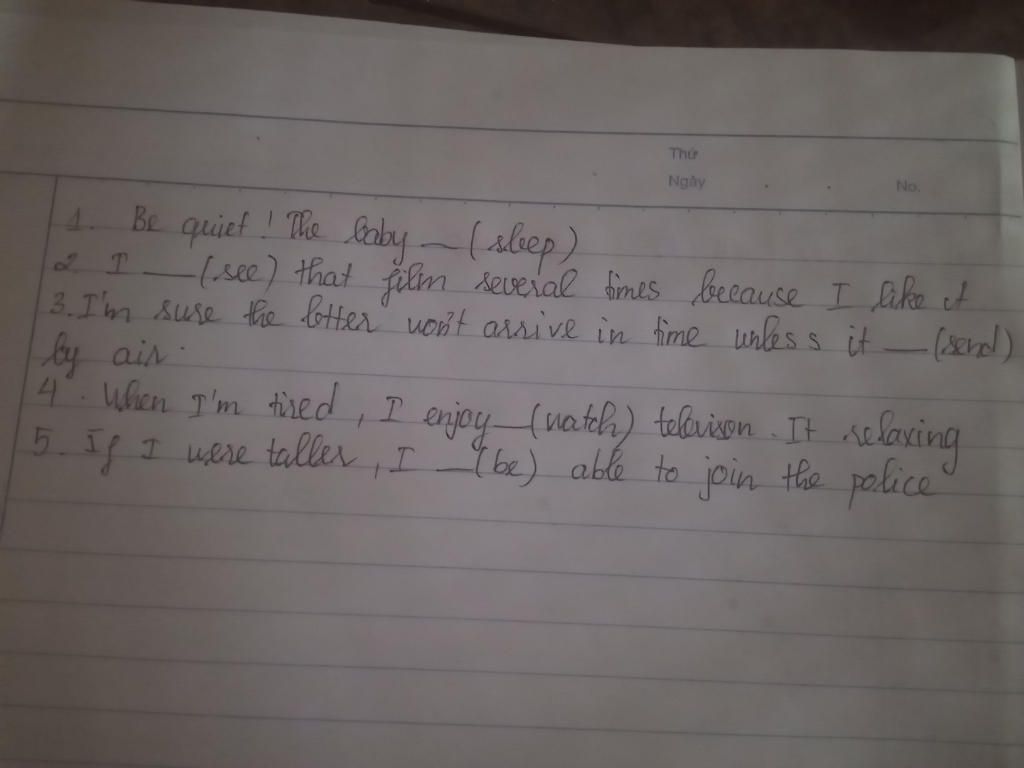 Thứ
Ngày
No.
1. Be quiet! The baby __ (sleep)
2. I ___ (see) that film several times because I like it
3. I'm sure the letter won't arrive in time unless it __ (send)
by air.
4. When I'm tired, I enjoy __ (watch) televison. It relaxing
5. If I were taller, I __ (be) able to join the police